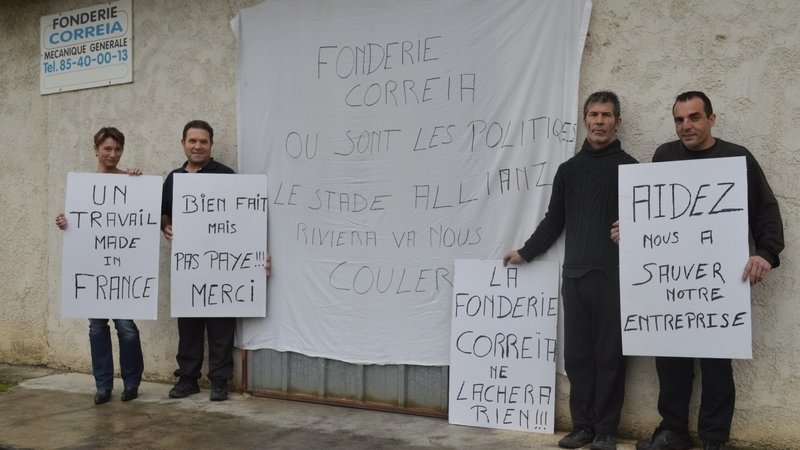 FONDERIE
CORREIA
MECANIQUE GENERALE
Tel. 85-40-00-13
FONDERIE
CORREÏA
OU SONT LES POLITIQUES
LE STADE ALLIANZ
RIVIERA VA NOUS
COULER
UN
TRAVAIL
MADE
IN
FRANCE
BIEN FAIT
MAIS
PAS PAYE!!!
MERCI
LA
FONDERIE
CORREÏA
NE
LACHERA
RIEN!!!
AIDEZ
NOUS A
SAUVER
NOTRE
ENTREPRISE